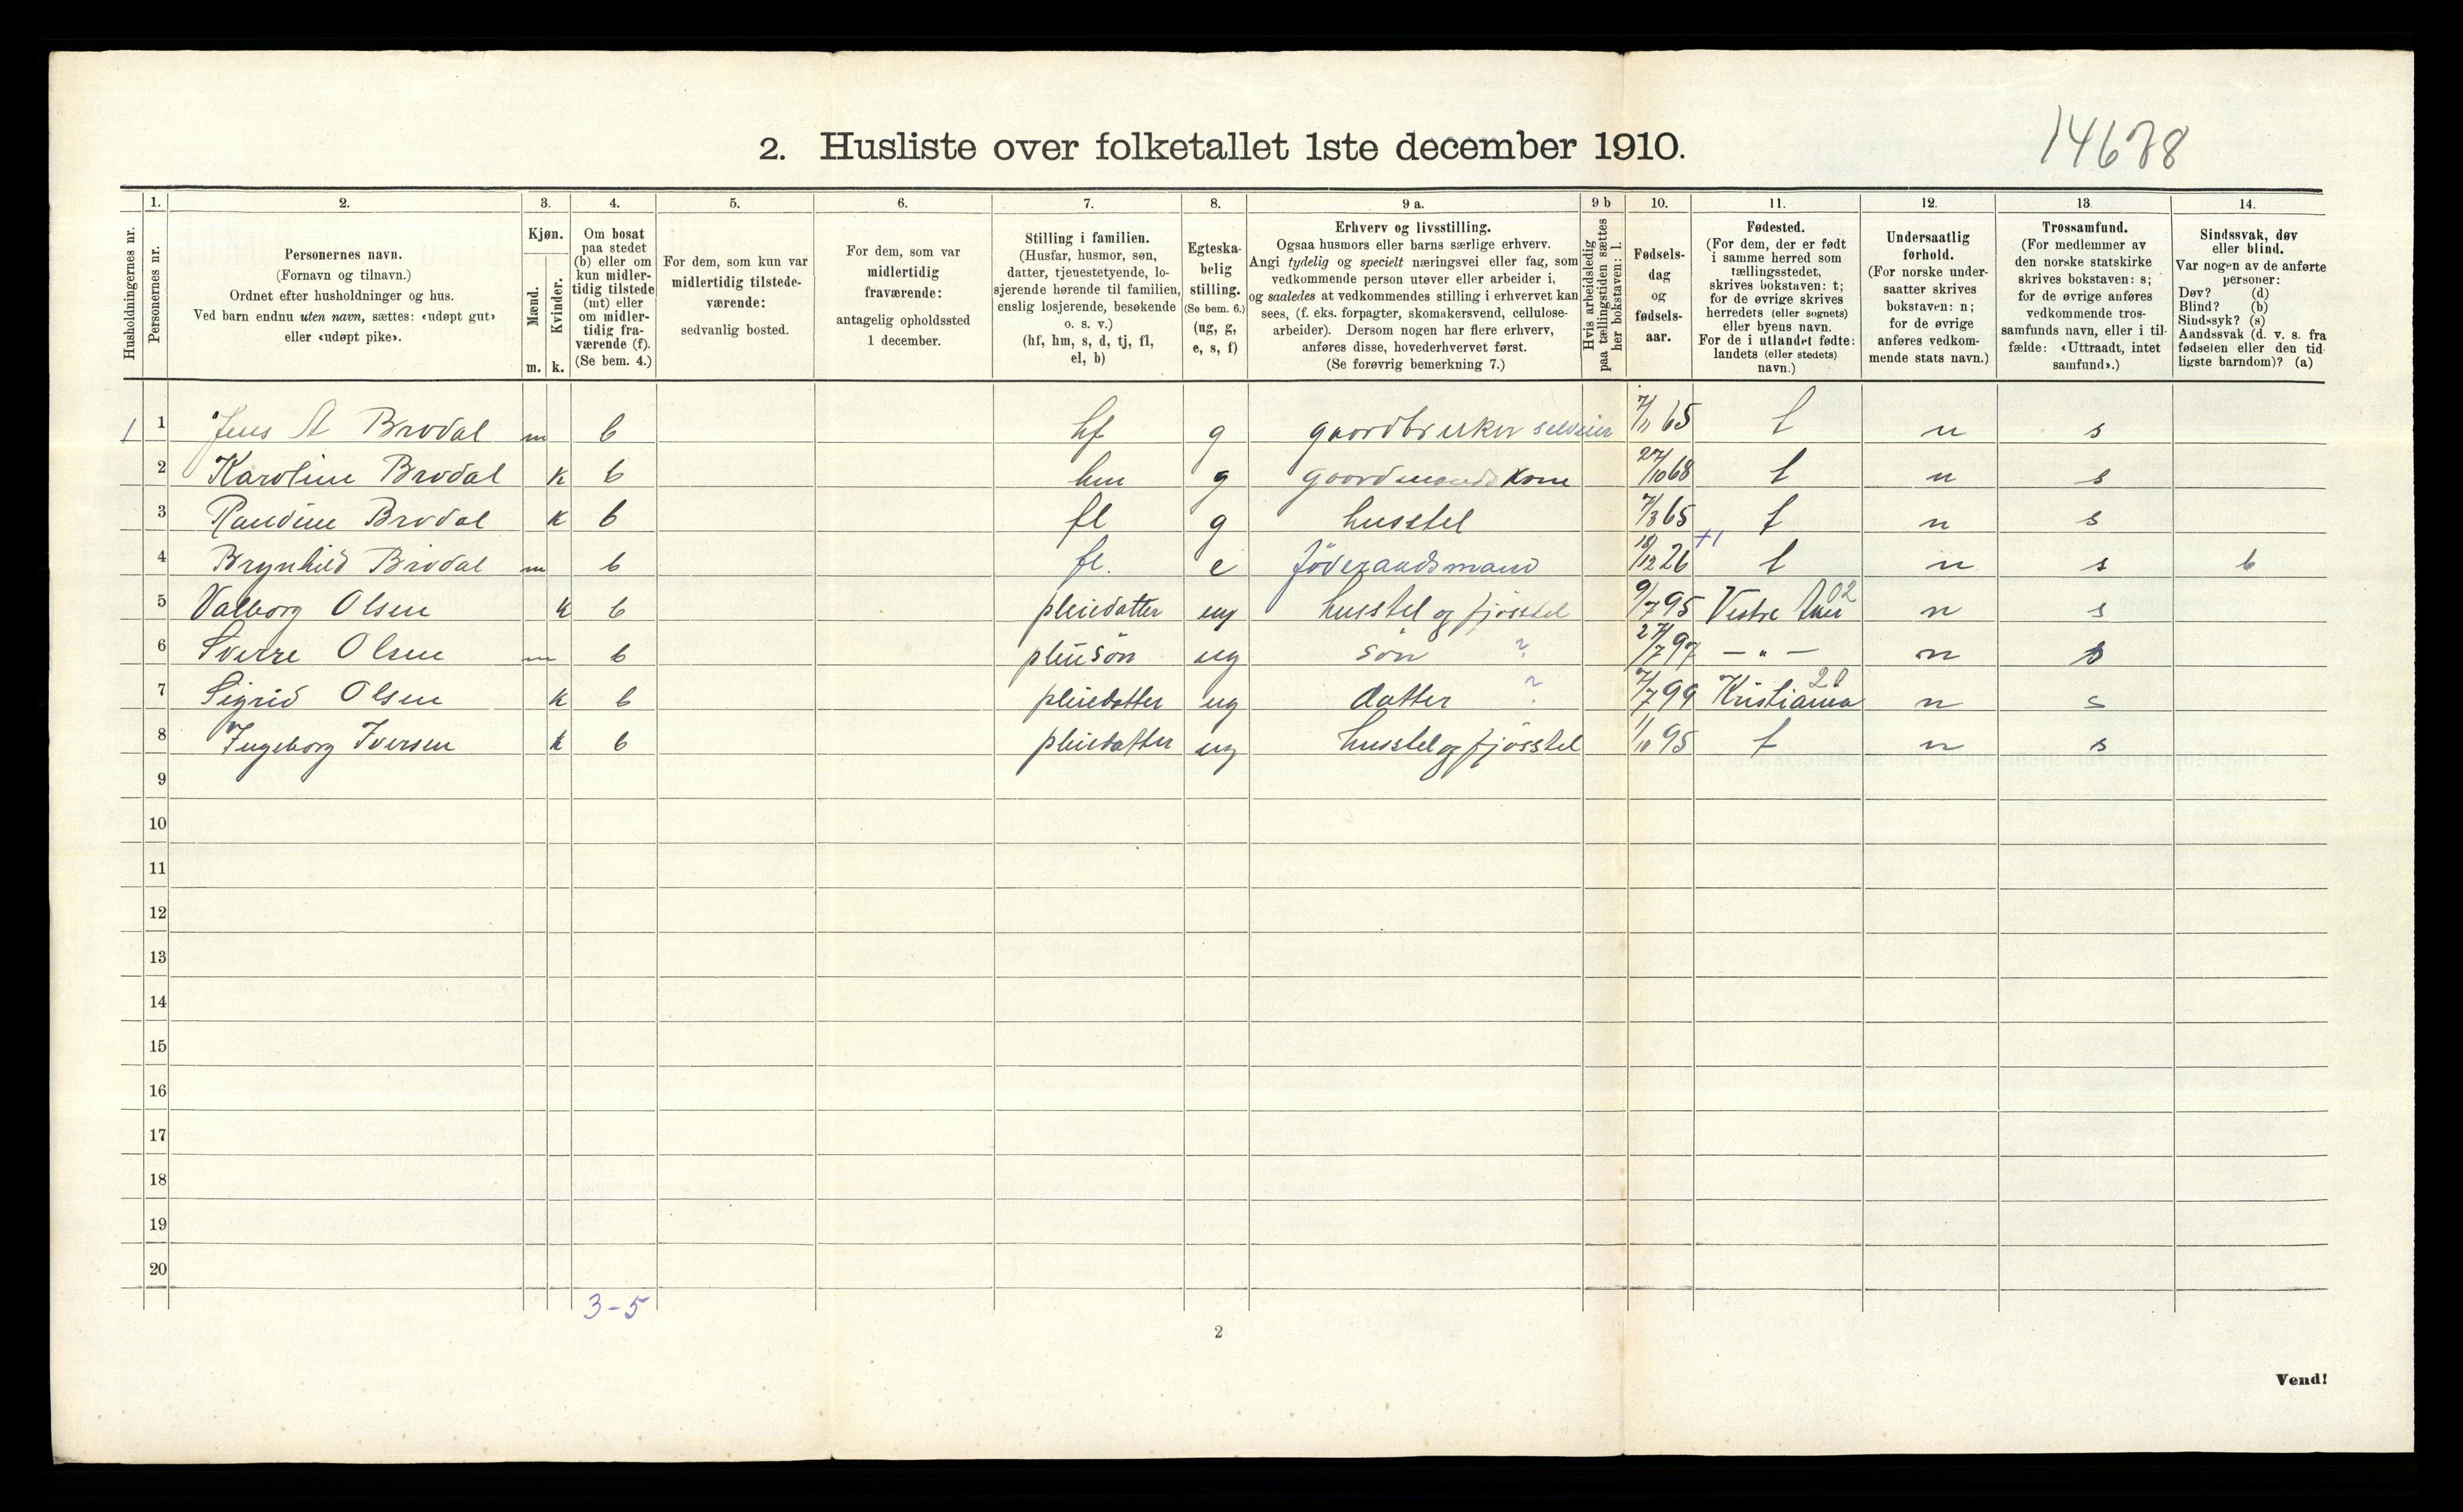 14678
2. Husliste over folketallet 1ste december 1910.
Husholdningernes nr.
1.
Personernes nr.
2.
Personernes navn.
(Fornavn og tilnavn.)
Ordnet efter husholdninger og hus.
Ved barn endnu uten navn, sættes: «udøpt gut»
eller «udøpt pike».
3.
Kjøn.
Mænd.
Kvinder.
m. k.
4.
Om bosat
paa stedet
(b) eller om
kun midler-
tidig tilstede
(mt) eller
om midler-
tidig fra-
værende (f).
(Se bem. 4.)
5.
For dem, som kun var
midlertidig tilstede-
værende:
sedvanlig bosted.
6.
For dem, som var
midlertidig
fraværende:
antagelig opholdssted
1 december.
7.
Stilling i familien.
(Husfar, husmor, søn,
datter, tjenestetyende, lo-
sjerende hørende til familien,
enslig losjerende, besøkende
o. s. v.)
(hf, hm, s, d, tj, fl,
el, b)
8.
Egteska-
belig
stilling.
(Se bem. 6.)
(ug, g,
e, s, f)
9 a.
Erhverv og livsstilling.
Ogsaa husmors eller barns særlige erhverv.
Angi tydelig og specielt næringsvei eller fag, som
vedkommende person utøver eller arbeider i,
og saaledes at vedkommendes stilling i erhvervet kan
sees, (f. eks. forpagter, skomakersvend, cellulose-
arbeider). Dersom nogen har flere erhverv,
anføres disse, hovederhvervet først.
(Se forøvrig bemerkning 7.)
9 b
Hvis arbeidsledig
paa tællingstiden sættes
her bokstaven: l.
10.
Fødsels-
dag
og
fødsels-
aar.
11.
Fødested.
(For dem, der er født
i samme herred som
tællingsstedet,
skrives bokstaven: t;
for de øvrige skrives
herredets (eller sognets)
eller byens navn.
For de i utlandet fødte:
landets (eller stedets)
navn.)
12.
Undersaatlig
forhold.
(For norske under-
saatter skrives
bokstaven: n;
for de øvrige
anføres vedkom-
mende stats navn.)
13
Trossamfund.
(For medlemmer av
den norske statskirke
skrives bokstaven: s;
for de øvrige anføres
vedkommende tros-
samfunds navn, eller i til-
fælde: «Uttraadt, intet
samfund».)
14.
Sindssvak, døv
eller blind.
Var nogen av de anførte
personer:
Døv? (d)
Blind? (b)
Sindssyk? (s)
Aandssvak (d. v. s. fra
fødselen eller den tid-
ligste barndom)? (a)
1 1 Jens A Brodal m b hf g gaardbruker selveier 7/11 65 t n s
2 Karoline Brodal k b hm g gaardmands kone 27/10 68 t n s
3 Randine Brodal k b fl g husstel 7/3 65 t n s
4 Brynhild Brodal m b fl. e föderaadsmand 18/12 26 +1 t n s b
5 Valborg Olsen k b pleiedatter ug husstel og fjösstel 9/7 95 Vestre Aker 02 n s
6 Sverre Olsen m b pleiesön ug sön ? 27/7 97 — " — n s
7 Sigrid Olsen k b pleiedatter ug datter ? 7/7 99 Kristiania 20 n s
8 Ingeborg Iversen k b pleiedatter ug husstel og fjösstel 1/10 95 t n s
9
10
11
12
13
14
15
16
17
18
19
20
3-5
2
Vend!